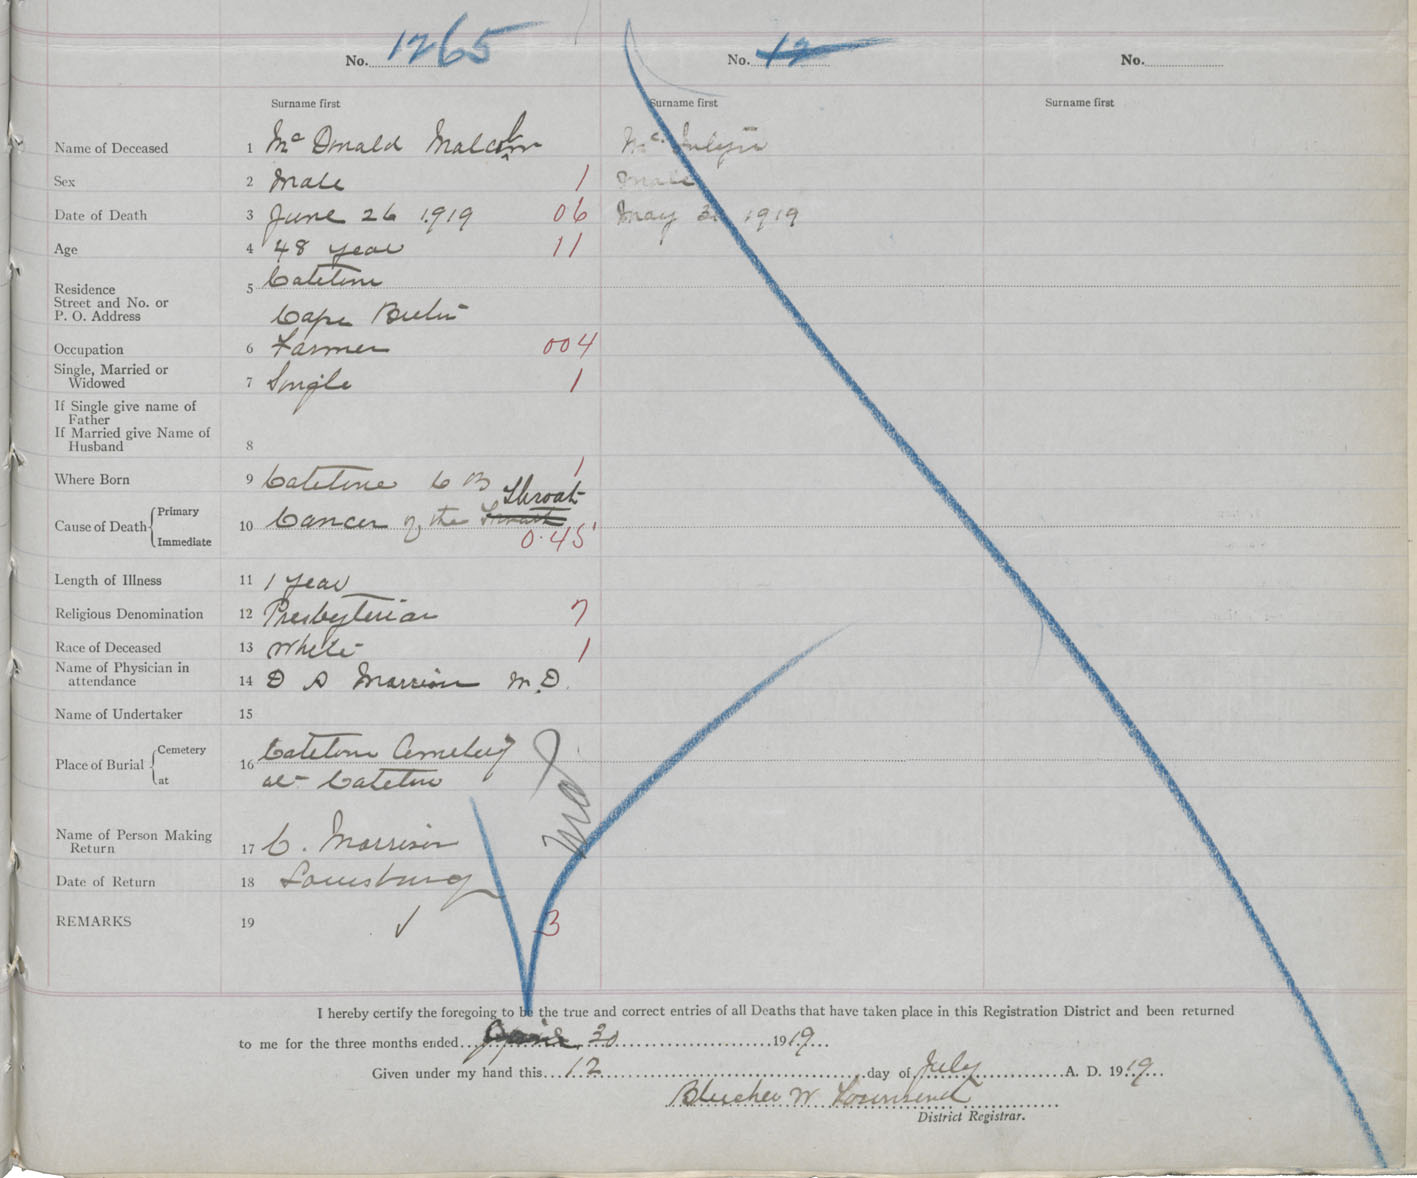 No. 1265 No. 12 No.
Surname first Surname first Surname first
Name of Deceased 1 Mc Donald Malcolm Mc.
Sex 2 Male 1 Male
Date of Death 3 June 26 1919 06 May 31 1919
Age 4 48 year 11
Residence 5 Catetone
Street and No. or
P. O. Address Cape Breton
Occupation 6 Farmer 004
Single, Married or
Widowed 7 Single 1
If Single give name of
Father
If Married give Name of
Husband 8
1
Where Born 9 Catetone C B
Throat
Cause of Death Primary 10 Cancer of the Throat
Immediate 0.45
Length of Illness 11 1 year
Religious Denomination 12 Presbyterian 7
Race of Deceased 13 White 1
Name of Physician in
attendance 14 D A Morrison M.D.
Name of Undertaker 15
Place of Burial Cemetery 16 Catetone Cemetery
at at Catetone
Name of Person Making
Return 17 C. Morrison
Date of Return 18 Louisburg
REMARKS 19 ✓ 3
I hereby certify the foregoing to be the true and correct entries of all Deaths that have taken place in this Registration District and been returned
to me for the three months ended June 30 1919
Given under my hand this 12 day of July A. D. 1919
Blucher W Townsend
District Registrar.